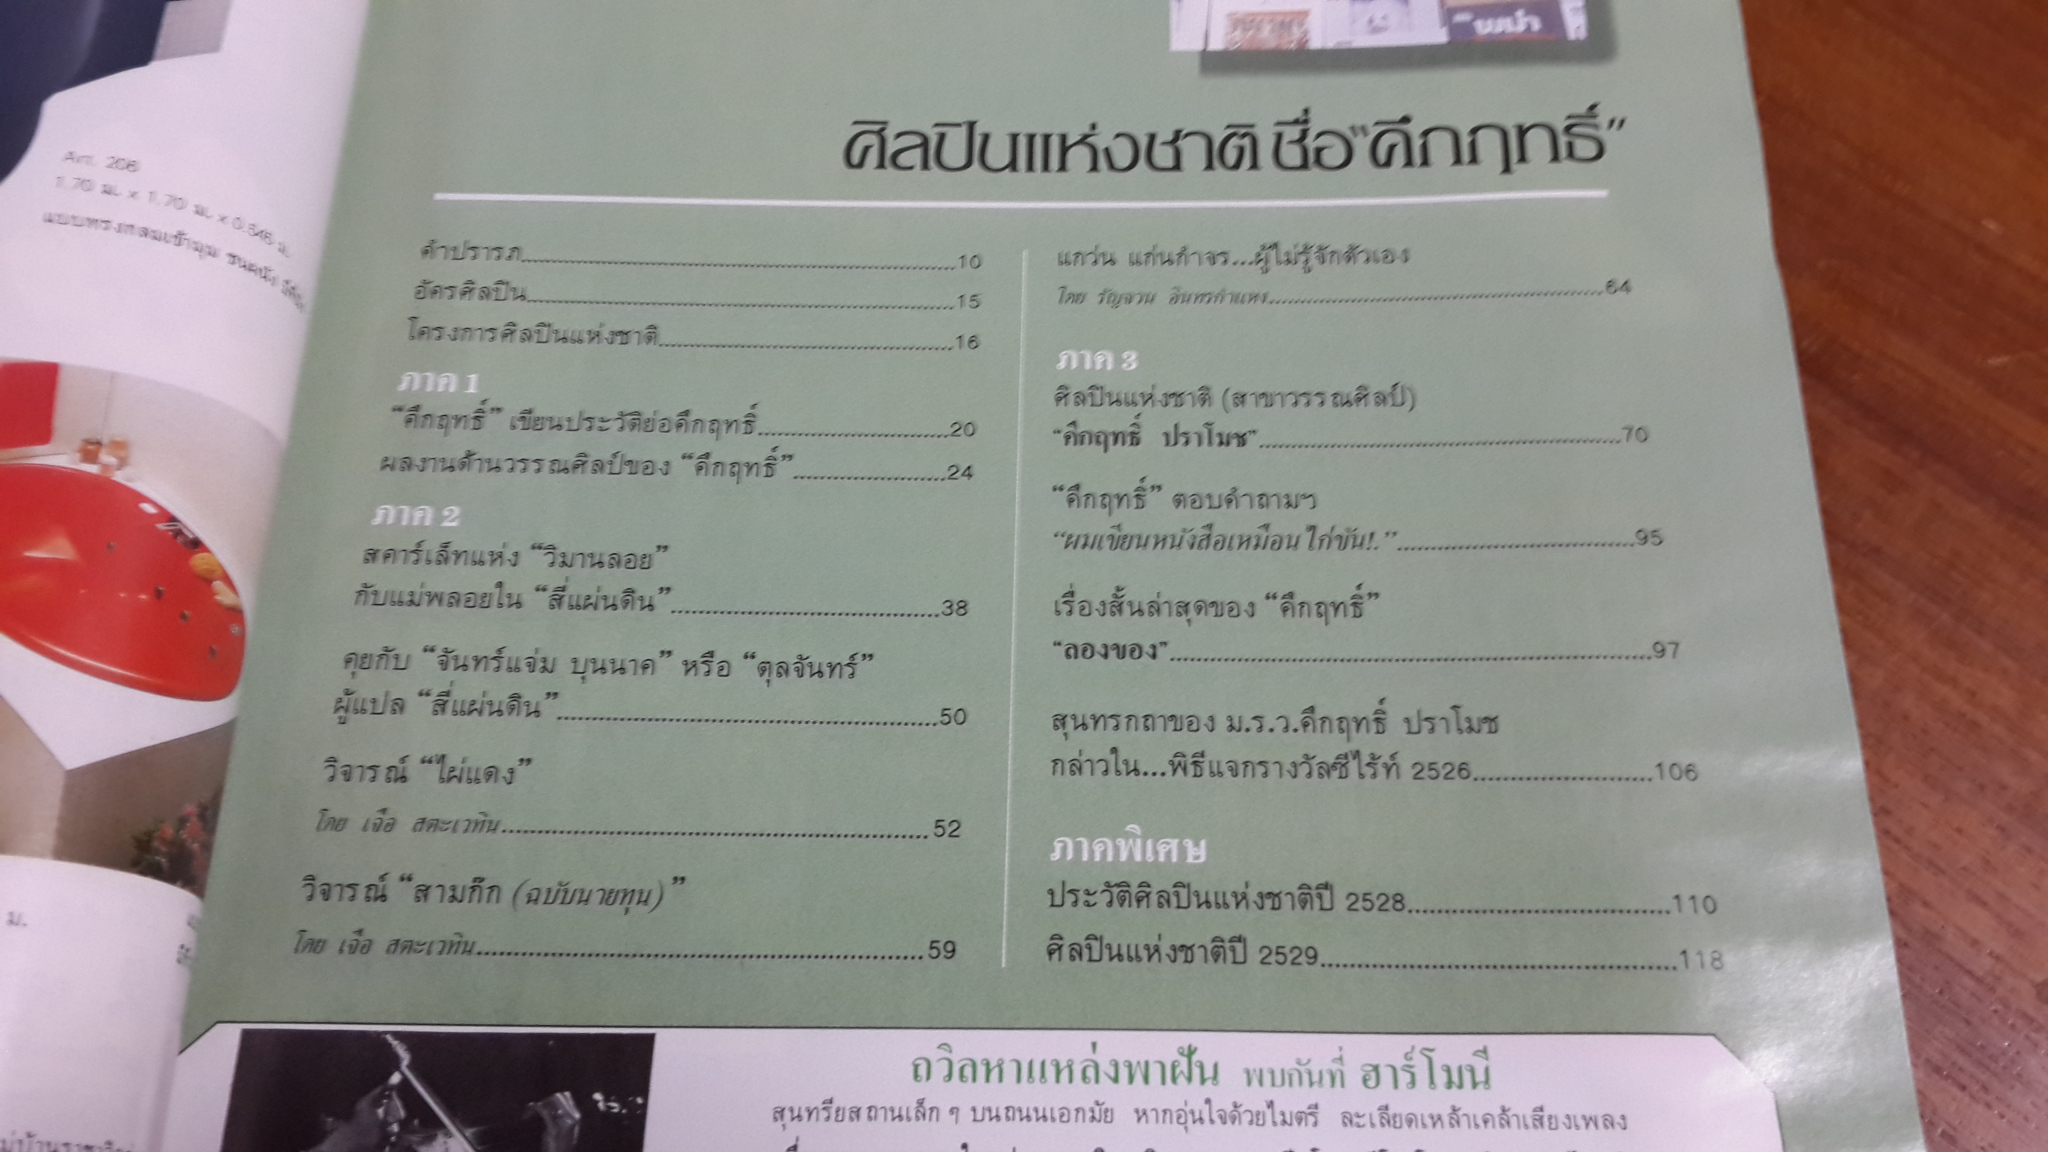 พม่า
ศิลปินแห่งชาติ ชื่อ"คึกฤทธิ์"
คำปรารภ..........10
อัครศิลปิน..........15
โครงการศิลปินแห่งชาติ..........16
ภาค 1
"คึกฤทธิ์" เขียนประวัติย่อคึกฤทธิ์..........20
ผลงานด้านวรรณศิลป์ของ "คึกฤทธิ์"..........24
ภาค 2
สคาร์เล็ทแห่ง "วิมานลอย"
กับแม่พลอยใน "สี่แผ่นดิน"..........38
คุยกับ "จันทร์แจ่ม บุนนาค" หรือ "ตุลจันทร์"
ผู้แปล "สี่แผ่นดิน"..........50
วิจารณ์ "ไผ่แดง"
โดย เจือ สตะเวทิน..........52
วิจารณ์ "สามก๊ก (ฉบับนายทุน)"
โดย เจือ สตะเวทิน..........59
แกว่น แก่นกำจร...ผู้ไม่รู้จักตัวเอง
โดย รัญจวน อินทรกำแหง..........64
ภาค 3
ศิลปินแห่งชาติ (สาขาวรรณศิลป์)
"คึกฤทธิ์ ปราโมช"..........70
"คึกฤทธิ์" ตอบคำถามฯ
"ผมเขียนหนังสือเหมือนไก่ขัน!."..........95
เรื่องสั้นล่าสุดของ "คึกฤทธิ์"
"ลองของ"..........97
สุนทรกถาของ ม.ร.ว.คึกฤทธิ์ ปราโมช
กล่าวใน...พิธีแจกรางวัลซีไร้ท์ 2526..........106
ภาคพิเศษ
ประวัติศิลปินแห่งชาติปี 2528..........110
ศิลปินแห่งชาติปี 2529..........118
ถวิลหาแหล่งพาฝัน พบกันที่ ฮาร์โมนี
สุนทรียสถานเล็ก ๆ บนถนนเอกมัย หากอุ่นใจด้วยไมตรี ละเลียดเหล้าเคล้าเสียงเพลง
Art. 206
1.70 ม. x 1.70 ม. x 0.546 ม.
แบบทรงกลมเข้ามุม ชนผนัง
ม.